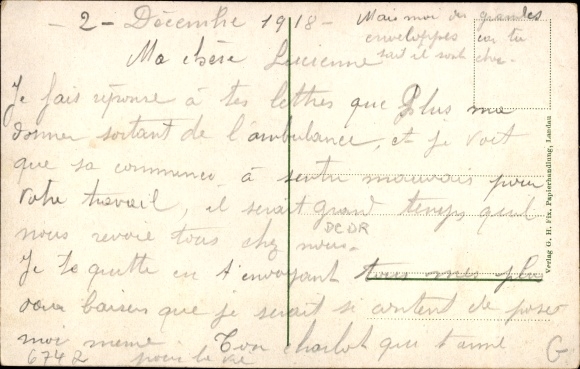 - 2 - Décembre 1918 -
Mais moi des grandes
enveloppes car tu
sait il sont cher -
Ma chère Lucienne
Je fais réponse à tes lettres que Plus ma
donner sortant de l'ambulance, et je voit
que sa commence à sentir mauvais pour
votre travail, il serait grand temps qu'il
nous revoie tous chez nous -
DCDR
Je te quitte en t'envoyant tous mes plus
doux baisers que je serait si content de poser
moi meme Ton charlot qui t'aime
pour la vie
6742
G
Verlag G. H. Fix, Papierhandlung, Landau